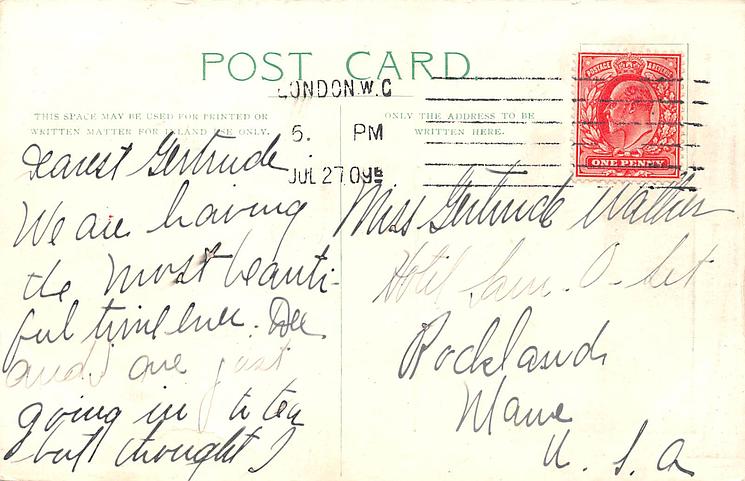 POST CARD
LONDON. W.C
5. PM
JUL 27 09
THIS SPACE MAY BE USED FOR PRINTED OR
WRITTEN MATTER FOR INLAND USE ONLY.
ONLY THE ADDRESS TO BE
WRITTEN HERE.
POSTAGE REVENUE
ONE PENNY
Dearest Gertrude
We are having
the most beauti-
ful time ever.
and I are just
going in to tea
but thought I
Miss Gertrude
Hotel Sam-O-Set
Rockland
Maine
U. S. A